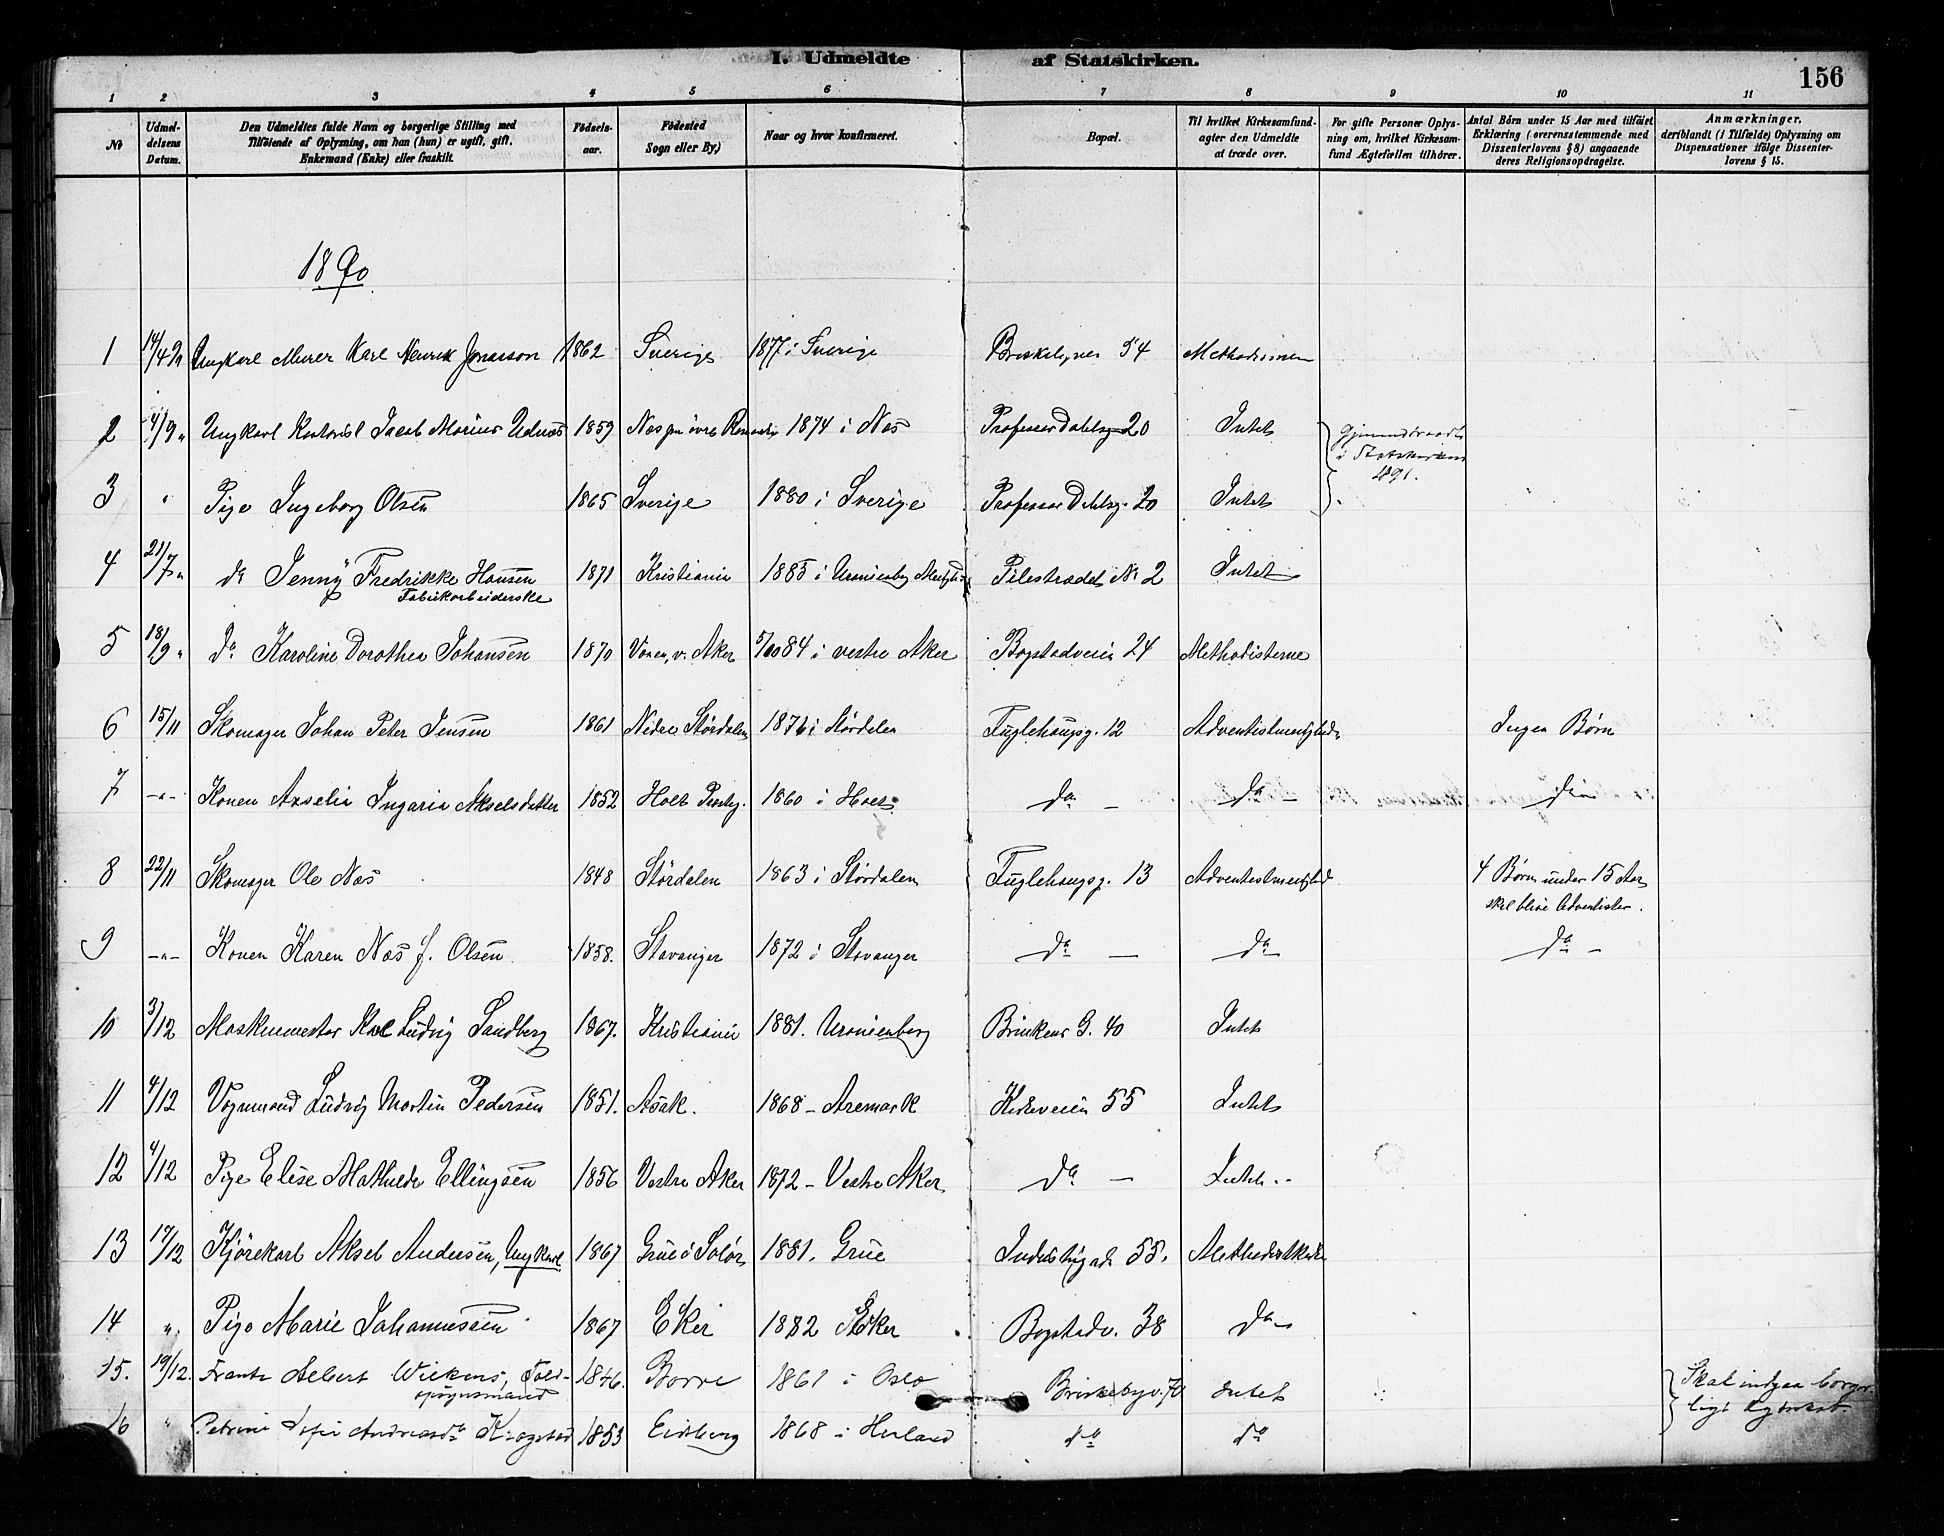 I. Udmeldte af Statskirken.
156
1 2 3 4 5 6 7 8 9 10 11
No
Udmel-
delsens
Datum.
Den Udmeldtes fulde Navn og borgerlige Stilling med
Tilföiende af Oplysning, om han (hun) er ugift, gift,
Enkemand (Enke) eller fraskilt.
Födsels-
aar.
Födested
Sogn eller By.)
Naar og hvor konfirmeret.
Bopæl.
Til hvilket Kirkesamfund-
agter den Udmeldte
at træde over.
For gifte Personer Oplys-
ning om, hvilket Kirkesam-
fund Ægtefællen tilhörer.
Antal Börn under 15 Aar med tilföiet
Erklæring (overensstemmende med
Dissenterlovens § 8) angaaende
deres Religionsopdragelse.
Anmærkninger,
deriblandt (i Tilfælde) Oplysning om
Dispensationer ifölge Dissenter-
lovens § 15.
1890
1 14/4 90 Ungkarl Murer Karl Henrik Jonasson 1862 Sverige 1877 i Sverige Briskebyvei 54
2 4/9 " Ungkarl Kontorist Jacob Marius Udnæs 1859 Næs paa övre Romerike 1874 i Næs Professor Dahlsg. 20 Intet
i Statskirken
1891.
3 " Pige Ingeborg Olsen 1865 Sverige 1880 i Sverige Professor Dahlsg. 20 Intet
4 21/7 " do Jenny Fredrikke Hansen 1871 Kristiania 1885 i Uranienborg Menighed Pilestrædet No 2 Intet
Fabrikarbeiderske
5 18/9 " do Karoline Dorothea Johansen 1870 v. Aker 5/10 84 i vestre Aker Bogstadveien 24 Methodisterne
6 15/11 Skomager Johan Peter Jensen 1861 Nedre Stördalen 1876 i Stördalen Fuglehaugg. 12 Adventistmenigheden Ingen Börn
7 -"- Konen Axselia Ingaria Akselsdatter 1852 Holt Præstg. 1860 i Holt do - do - do
8 22/11 Skomager Ole Næs 1848 Stördalen 1863 i Stördalen Fuglehaugsg. 13 Adventistmenighed 4 Börn under 15 Aar
skal blive Adventister.
9 -"- Konen Karen Næs f. Olsen 1858. Stavanger 1872 i Stavanger do - do do -
10 3/12 Maskinmester Karl Ludvig Sandberg 1867. Kristiania 1881. Uranienborg Brinkens G. 40 Intet
11 4/12 Vognmand Ludvig Martin Pedersen 1851. Asak. 1868 - Aremark Kirkeveien 55 Intet
12 4/12 Pige Elise Mathilde Ellingsen 1856 Vestre Aker 1872 - Vestre Aker do - Intet
13 17/12 Kjörekarl Aksel Andersen, Ungkarl 1867 Grue i Solör 1881. Grue Industrigade 55. Methodistkirken
14 " Pige Marie Johannessen 1867 Eker 1882 Eker Bogstadv. 38 do
15. 19/12. Frantz Albert Wilkens, Told-
opsynsmand 1846. Borre 1861 i Oslo Briskebyv. 70 Intet
Skal indgaa borger-
ligt Ægteskab.
16 " Petrine Sofie Andreasdr Krogstad 1853 Eidsberg 1868 i Herland do do